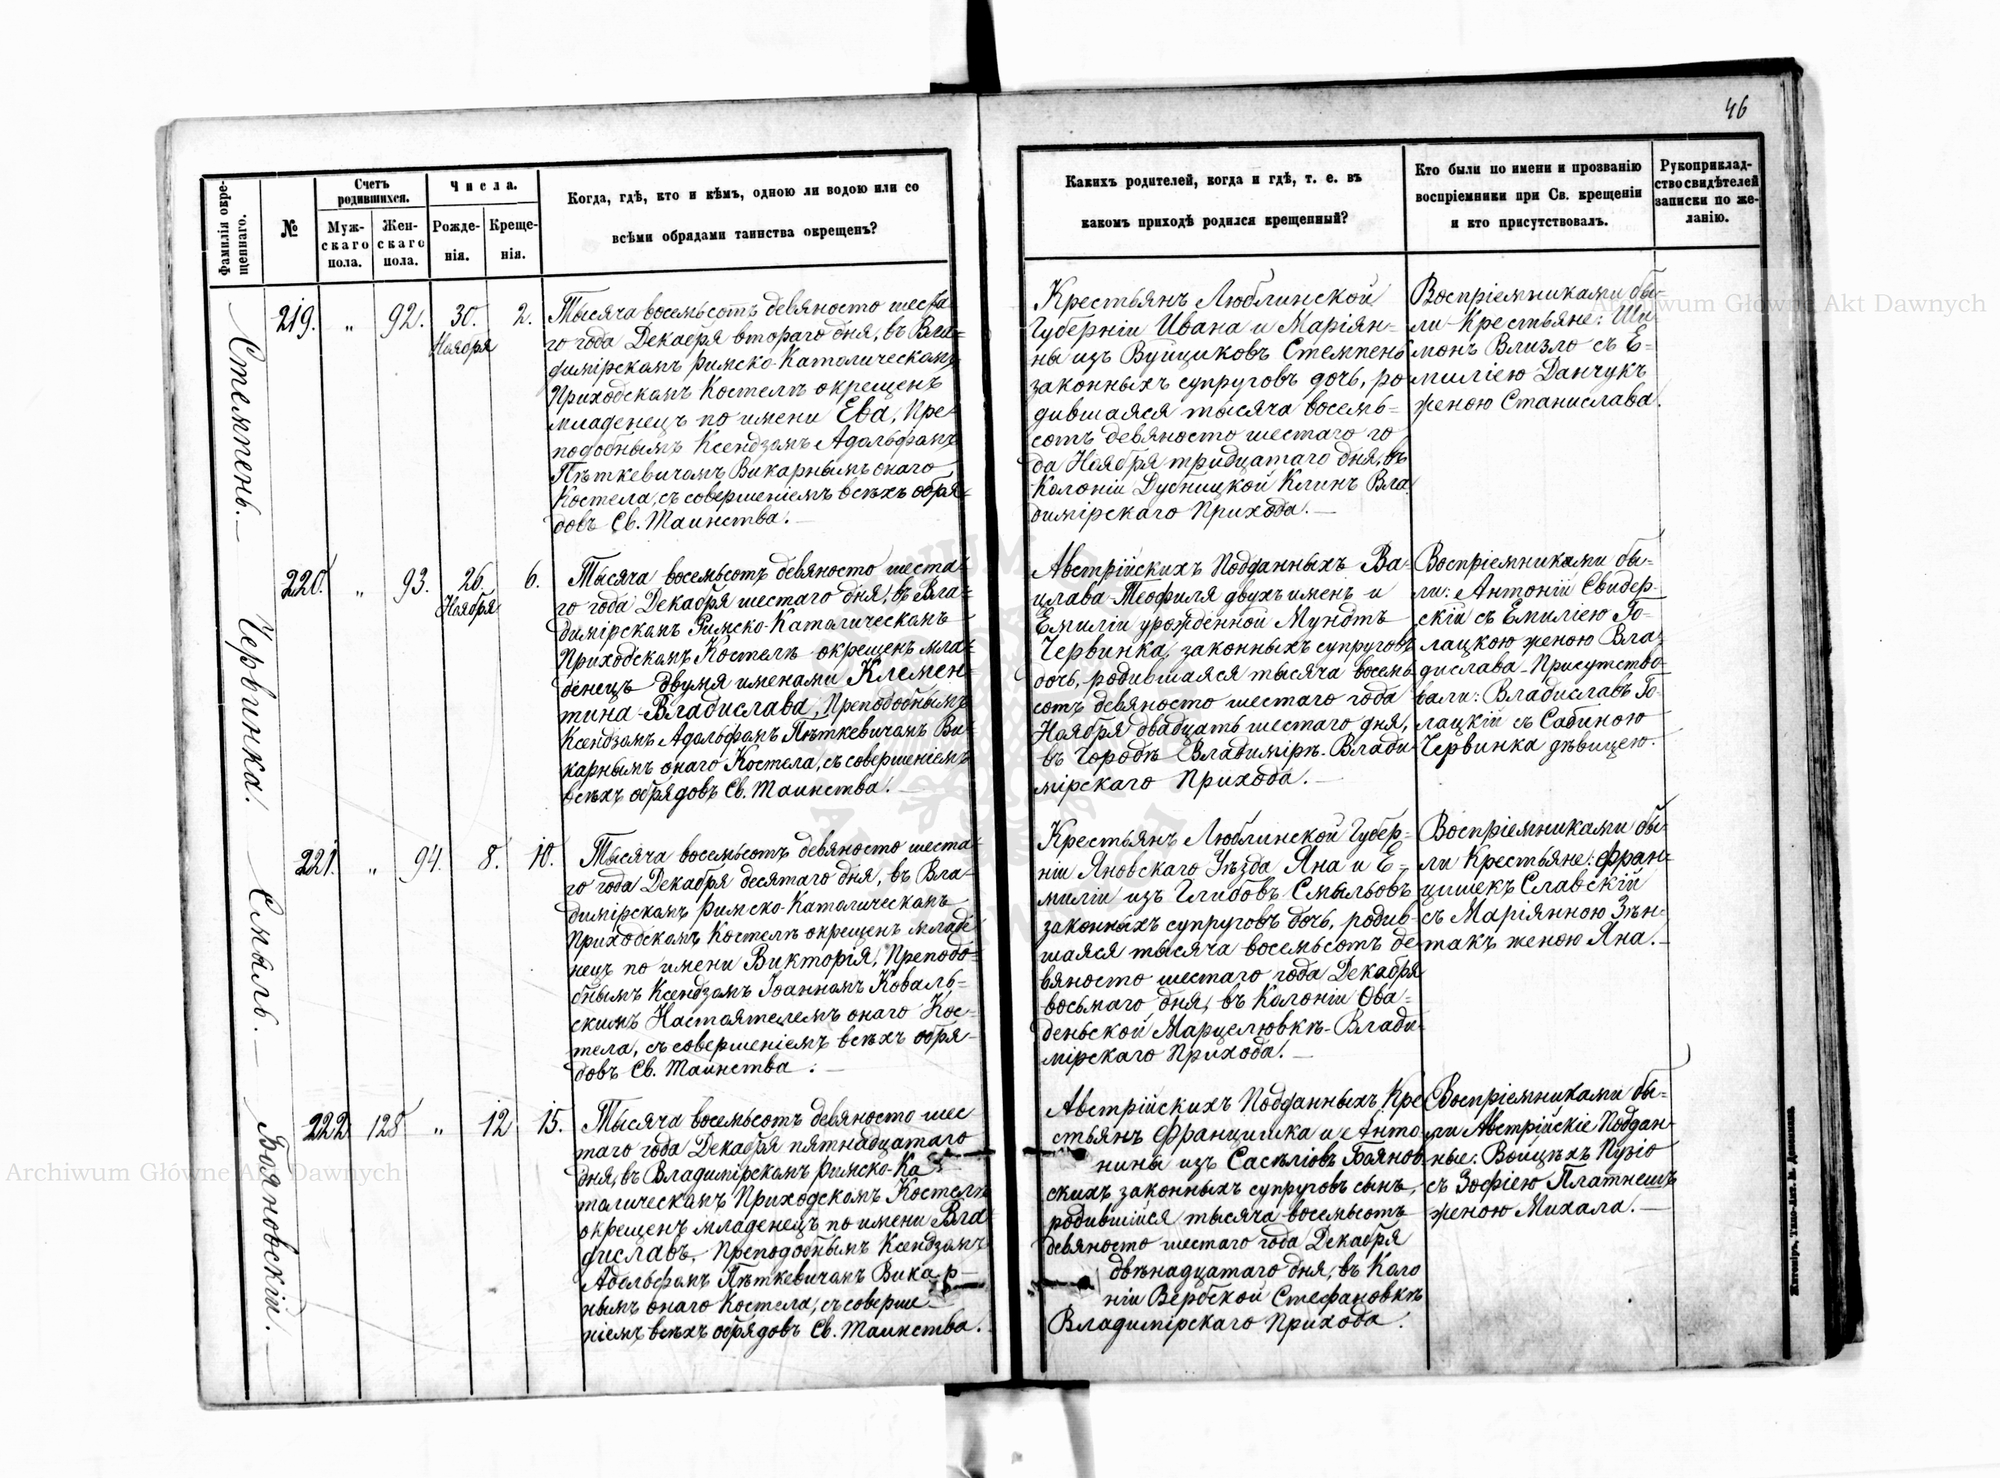 46
Фамилія окре-
щеннаго.
№
Счетъ
родившихся.
Муж-
скаго
пола.
Жен-
скаго
пола.
Числа.
Рожде-
нія.
Креще-
нія.
Когда, гдѣ, кто и кѣмъ, одною ли водою или со
всѣми обрядами таинства окрещенъ?
Какихъ родителей, когда и гдѣ, т. е. въ
какомъ приходѣ родился крещенный?
Кто были по имени и прозванію
воспріемники при Св. крещеніи
и кто присутствовалъ.
Рукоприклад-
ство свидѣтелей
записки по же-
ланію.
Стемпень.
219.
„
92.
30.
Ноября
2.
Тысяча восемьсотъ девяносто шеста
го года Декабря втораго дня, въ Вла-
димірскомъ Римско-Католическомъ
Приходскомъ Костелѣ окрещенъ
младенецъ по имени Ева, Пре-
подобнымъ Ксендзомъ Адольфомъ
Пѣткевичомъ Викарнымъ онаго
Костела, съ совершеніемъ всѣхъ обря-
довъ Св. Таинства.
Крестьянъ Люблинской
Губерніи Ивана и Маріян-
ны изъ Вуйциковъ Стемпень
законныхъ супруговъ дочь, ро
дившаяся тысяча восемь-
сотъ девяносто шестаго го
да Ноября тридцатаго дня, въ
Колоніи Дубницкой Клинъ Вла
димірскаго Прихода.
Воспріемниками бы-
ли Крестьяне: Ши
монъ Влизло съ Е-
миліею Данчукъ
женою Станислава.
Червинка.
220.
„
93.
26.
Ноября
6.
Тысяча восемьсотъ девяносто шеста-
го года Декабря шестаго дня, въ Вла-
димірскомъ Римско-Католическомъ
Приходскомъ Костелѣ окрещенъ мла-
денецъ двумя именами Клемен-
тина-Владислава, Преподобнымъ
Ксендзомъ Адольфомъ Пѣткевичомъ Ви-
карнымъ онаго Костела, съ совершеніемъ
всѣхъ обрядовъ Св. Таинства.
Австрійскихъ Подданныхъ Ва-
цлава-Теофиля двухъ именъ и
Емиліи урожденной Мундтъ
Червинка, законныхъ супруговъ
дочь, родившаяся тысяча восемь
сотъ девяносто шестаго года
Ноября двадцать шестаго дня,
въ Городѣ Владимірѣ-Влади
мірскаго Прихода.
Воспріемниками бы-
ли: Антоній Свидер-
скій съ Емиліею Го-
лацкою женою Вла-
дислава-Присутство-
вали: Владиславъ Го-
лацкій съ Сабиною
Червинка дѣвицею.
Смыль.
221.
„
94.
8.
10.
Тысяча восемьсотъ девяносто шеста-
го года Декабря десятаго дня, въ Вла-
димірскомъ Римско-Католическомъ
Приходскомъ Костелѣ окрещенъ младе
нецъ по имени Викторія, Преподо-
бнымъ Ксендзомъ Іоанномъ Коваль-
скимъ Настоятелемъ онаго Кос-
тела, съ совершеніемъ всѣхъ обря-
довъ Св. Таинства.
Крестьянъ Люблинской Губер-
ніи Яновскаго Уѣзда Яна и Е-
миліи изъ Глибовъ Смыльовъ
законныхъ супруговъ дочь, родив-
шаяся тысяча восемьсотъ де
вяносто шестаго года Декабря
восьмаго дня, въ Колоніи Ова-
деньской Марцелювкѣ-Влади-
мірскаго Прихода.
Воспріемниками бы-
ли Крестьяне: Фран-
цишекъ Славскій
съ Маріянною Зѣн-
такъ женою Яна.
Бояновскій.
222.
128
„
12
15.
Тысяча восемьсотъ девяносто шес
таго года Декабря пятнадцатаго
дня, въ Владимірскомъ Римско-Ка
толическомъ Приходскомъ Костелѣ
окрещенъ младенецъ по имени Вла
диславъ, Преподобнымъ Ксендзомъ
Адольфомъ Пѣткевичомъ Викар-
нымъ онаго Костела, съ соверше
ніемъ всѣхъ обрядовъ Св. Таинства.
Австрійскихъ Подданныхъ Кре
стьянъ Францишка и Анто
нины изъ Сасѣловъ Боянов
скихъ законныхъ супруговъ сынъ,
родившійся тысяча восемьсотъ
девяносто шестаго года Декабря
двѣнадцатаго дня, въ Коло
ніи Вербской Стефановкѣ
Владимірскаго Прихода.
Воспріемниками бы-
ли Австрійскіе Поддан-
ные: Войцѣхъ Пузіо
съ Зофіею Платнешъ
женою Михала.
Житомір, Типо-Лит. М. Дененмана.
Archiwum Główne Akt Dawnych
Archiwum Główne Akt Dawnych